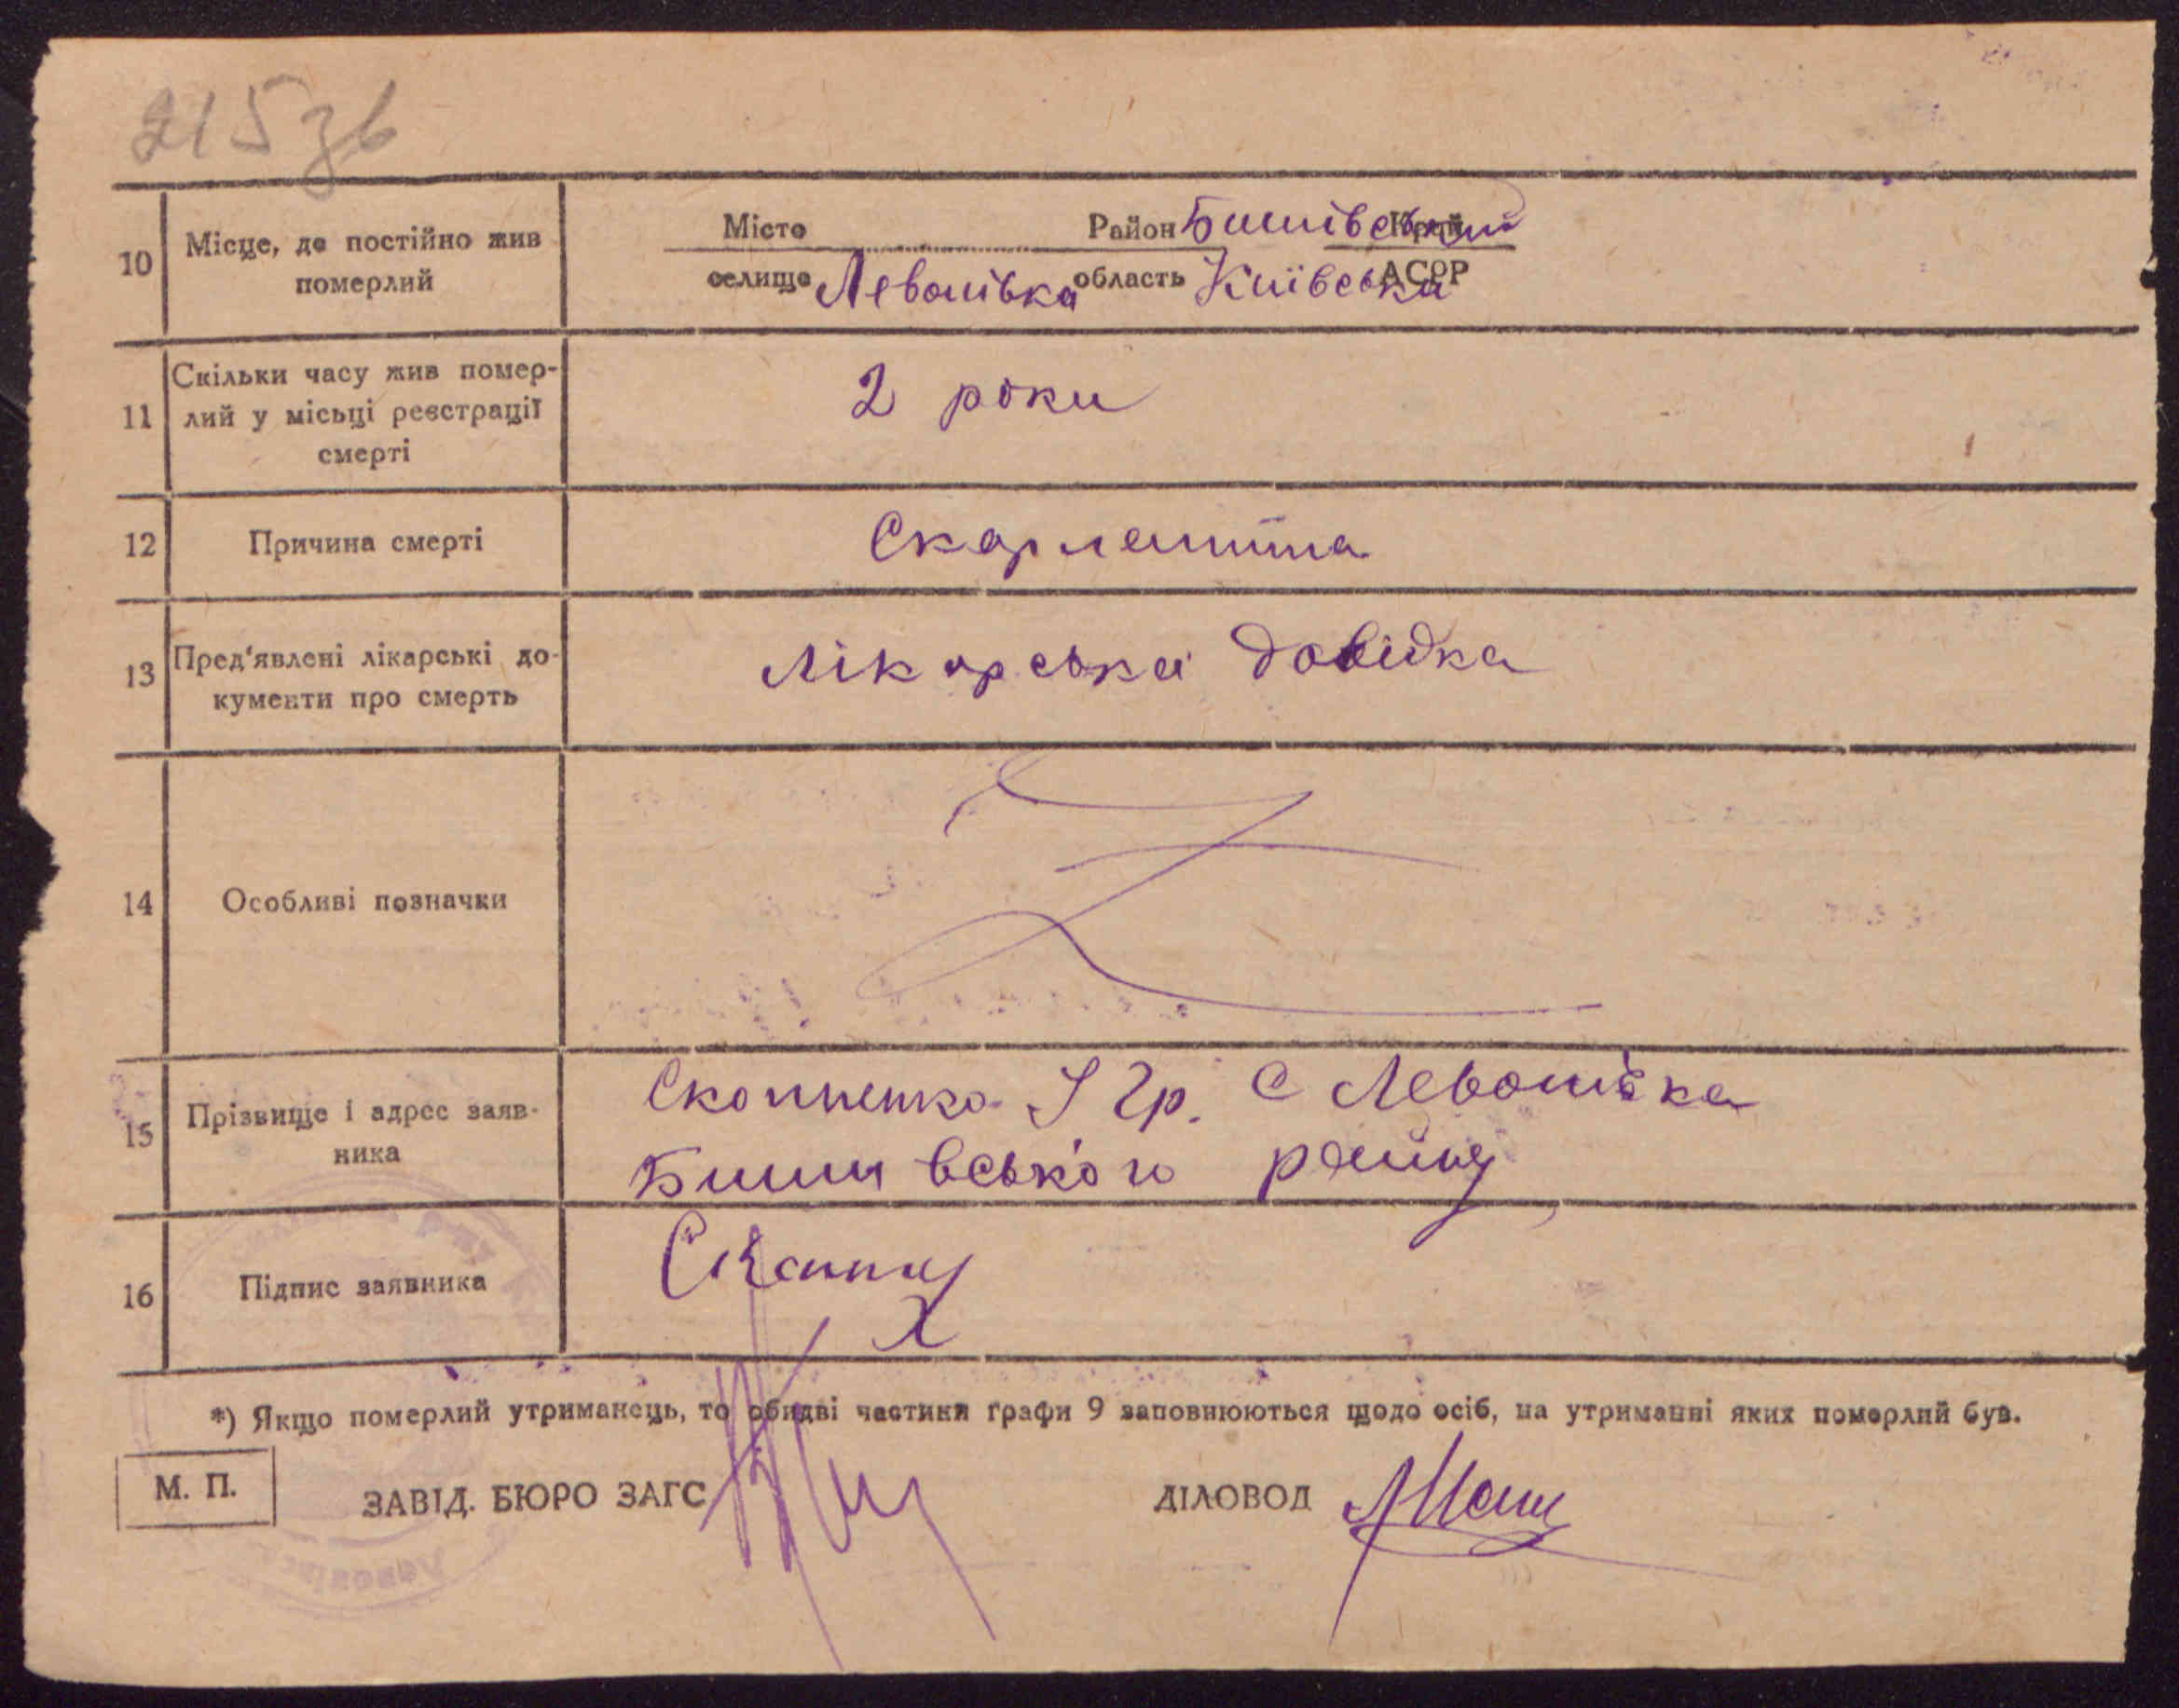 215 зв
10 Місце, де постійно жив померлий
Місто Район Бишівський Край
селище Левонівка область Київська АСРР
11 Скільки часу жив помер-
лий у місьці реєстрації
смерті
2 роки
12 Причина смерті Скарлатина
13 Пред'явлені лікарські до-
кументи про смерть
Лікарська довідка
14 Особливі позначки
15 Прізвище і адрес заяв-
ника
І Гр. с Левонівка
Бишивського району
16 Підпис заявника
*) Якщо померлий утриманець, то обидві частини графи 9 заповнюються щодо осіб, на утриманні яких померлий був.
М. П. ЗАВІД. БЮРО ЗАГС ДІЛОВОД